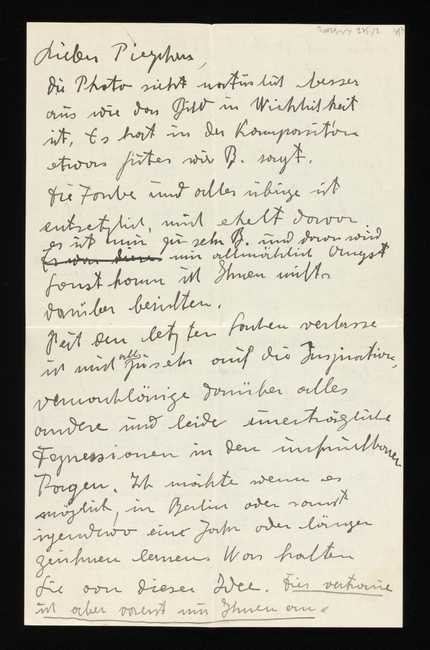 Lieber Pieper,
die Photo sieht natürlich besser
aus wie das Bild in Wirklichkeit
ist. Es hat in der Komposition
etwas gutes wie B. sagt.
Die Farbe und alles übrige ist
entsetzlich, mich ekelt davor
es ist mir zu sehr B. und davor wird
mir allmählich Angst
Sonst kann ich Ihnen nichts
darüber berichten.
Seit den letzten Sachen verlasse
ich mich allzusehr auf die Inspiration,
vernachlässige darüber alles
andere und leide unerträgliche
Depressionen in den unfruchtbaren
Tagen. Ich möchte wenn es
möglich, in Berlin oder sonst
irgendwo ein Jahr oder länger
zeichnen lernen. Was halten
Sie von dieser Idee. Dies vertraue
ich aber vorerst nur Ihnen an.